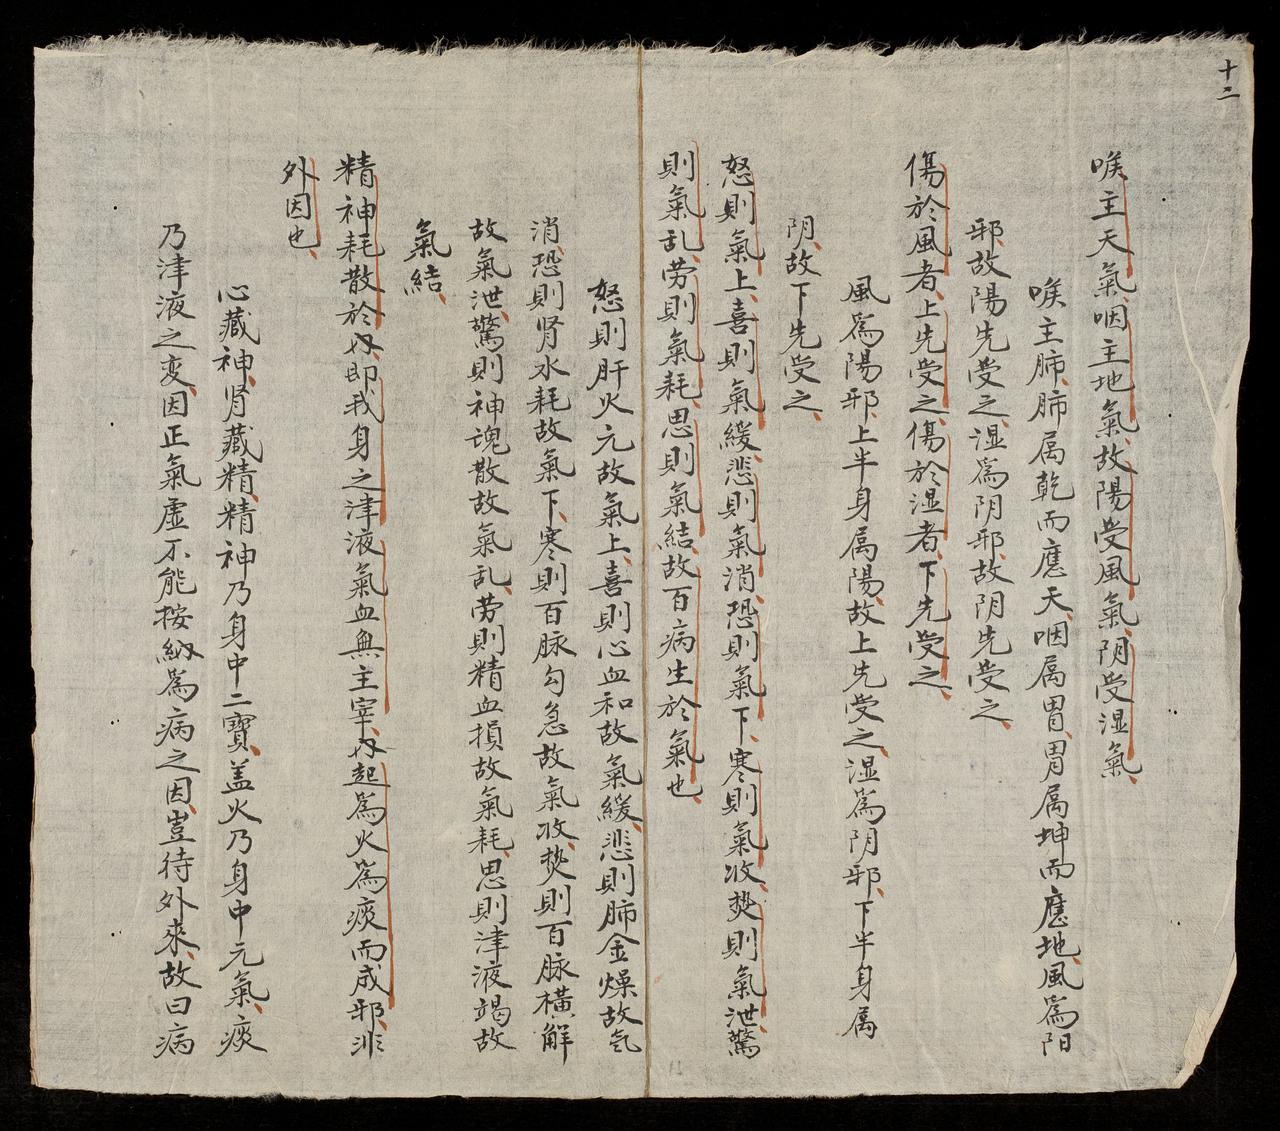 十二
喉主天氣咽主地氣故陽受風氣阴受湿氣
喉主肺肺属乾而應天咽属胃胃属坤而應地風為阳
邪故陽先受之湿為阴邪故阴先受之
傷於風者上先受之傷於湿者下先受之
風為陽邪上半身属陽故上先受之湿為阴邪下半身属
阴故下先受之
怒則氣上喜則氣緩悲則氣消恐則氣下寒則氣收焚則氣泄驚
則氣乱劳則氣耗思則氣結故百病生於氣也
怒則肝火元故氣上喜則心血和故氣緩悲則肺金燥故氣
消恐則肾水耗故氣下寒則百脉勾急故氣收焚則百脉横解
故氣泄驚則神魂散故氣乱劳則精血損故氣耗思則津液竭故
氣結
精神耗散於内即我身之津液氣血無主宰内起為火為痰而成邪非
外因也
心藏神肾藏精精神乃身中二寶盖火乃身中元氣痰
乃津液之変因正氣虛不能按納為病之因豈待外來故曰病